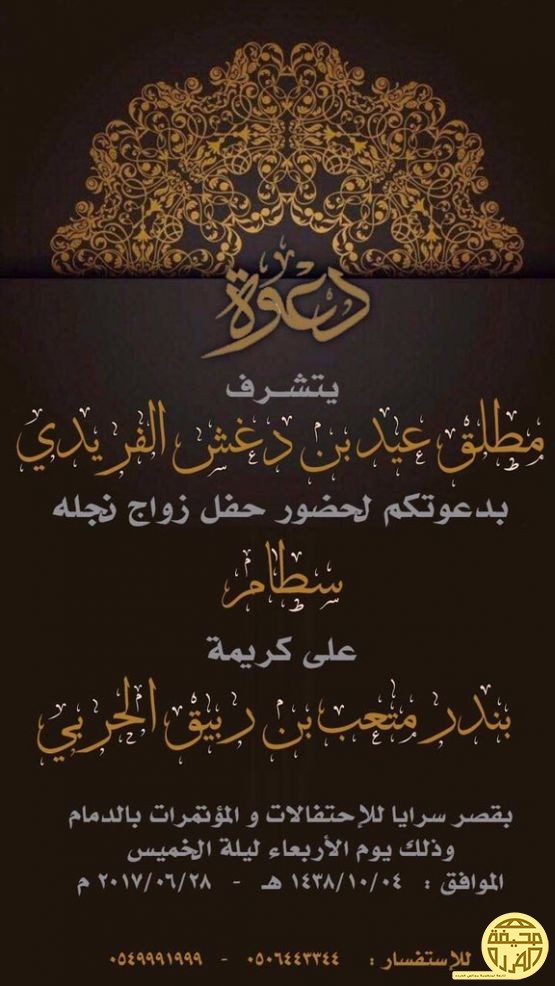 دعوة
يتشرف
مطلق عيد بن دغش الفريدي
بدعوتكم لحضور حفل زواج نجله
سطام
على كريمة
بندر متعب بن ربيق الحربي
بقصر سرايا للإحتفالات و المؤتمرات بالدمام
وذلك يوم الأربعاء ليلة الخميس
الموافق : ١٤٣٨/١٠/٠٤ هـ - ٢٠١٧/٠٦/٢٨ م
للإستفسار : ٠٥٠٦٤٤٣٣٤٤ - ٠٥٤٩٩٩١٩٩٩
صحيفة